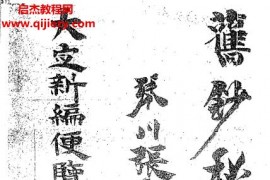 舊鈔秘
琴川張
大定新編便覽
启杰教程网
www.qijiejc.com